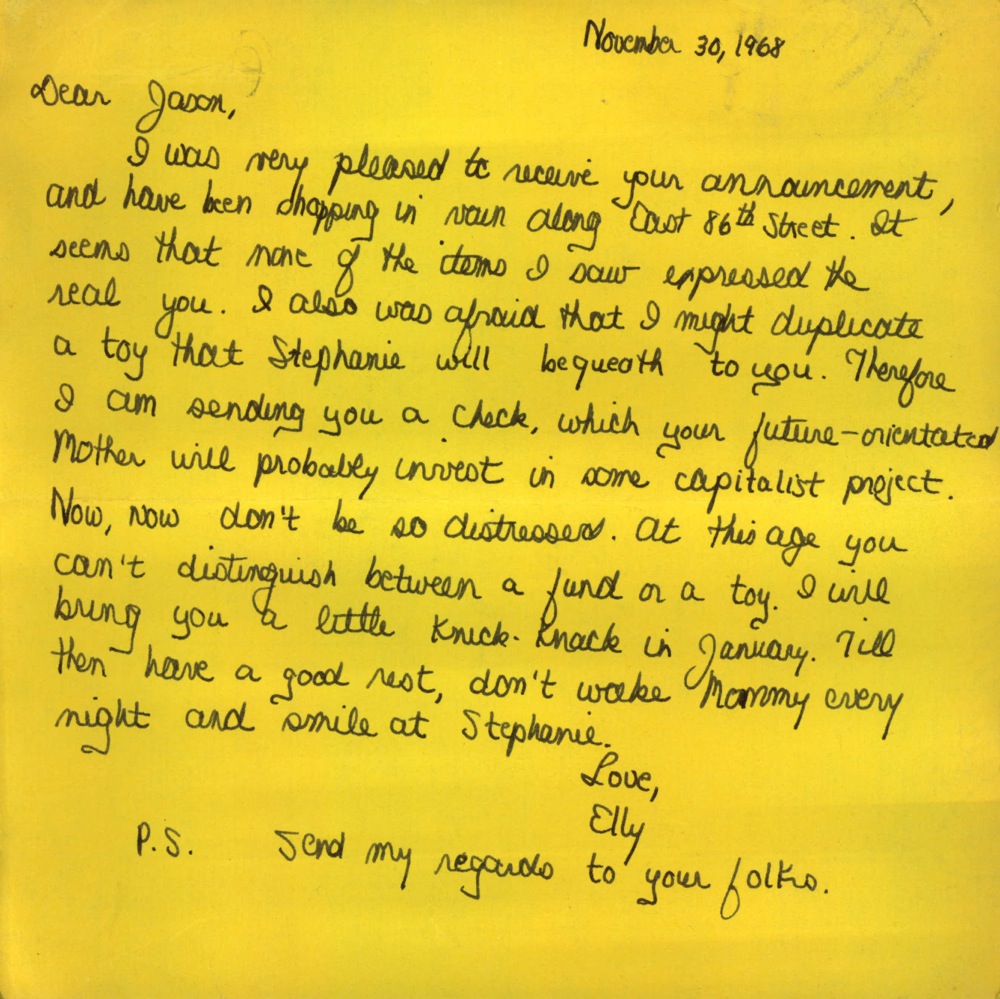 November 30, 1968
Dear Jason,
I was very pleased to receive your announcement,
and have been shopping in vain along East 86th Street. It
seems that none of the items I saw expressed the
real you. I also was afraid that I might duplicate
a toy that Stephanie will bequeath to you. Therefore
I am sending you a check, which your future-orientated
Mother will probably invest in some capitalist project.
Now, now don't be so distressed. At this age you
can't distinguish between a fund or a toy. I will
bring you a little Knick-Knack in January. Till
then have a good rest, don't wake Mommy every
night and smile at Stephanie.
Love,
Elly
P.S. Send my regards to your folks.